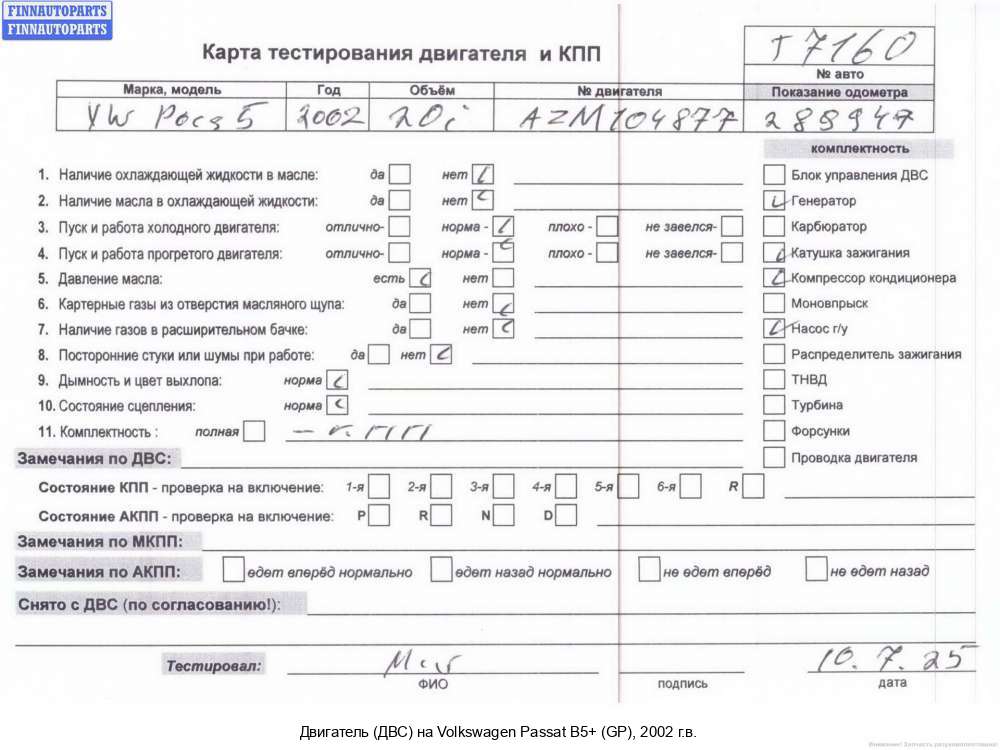 FINNAUTOPARTS
FINNAUTOPARTS
Карта тестирования двигателя и КПП
T 7160
№ авто
Марка, модель Год Объём № двигателя Показание одометра
VW Pocg 5 2002 20i AZM104877 289947
комплектность
1. Наличие охлаждающей жидкости в масле: да нет Блок управления ДВС
2. Наличие масла в охлаждающей жидкости: да нет Генератор
3. Пуск и работа холодного двигателя: отлично- норма - плохо - не завелся- Карбюратор
4. Пуск и работа прогретого двигателя: отлично- норма - плохо - не завелся- Катушка зажигания
5. Давление масла: есть нет Компрессор кондиционера
6. Картерные газы из отверстия масляного щупа: да нет Моновпрыск
7. Наличие газов в расширительном бачке: да нет Насос г/у
8. Посторонние стуки или шумы при работе: да нет Распределитель зажигания
9. Дымность и цвет выхлопа: норма ТНВД
10. Состояние сцепления: норма Турбина
11. Комплектность : полная Форсунки
Замечания по ДВС: Проводка двигателя
Состояние КПП - проверка на включение: 1-я 2-я 3-я 4-я 5-я 6-я R
Состояние АКПП - проверка на включение: P R N D
Замечания по МКПП:
Замечания по АКПП: едет вперёд нормально едет назад нормально не едет вперёд не едет назад
Снято с ДВС (по согласованию!):
Тестировал: 10.7.25
ФИО подпись дата
Двигатель (ДВС) на Volkswagen Passat B5+ (GP), 2002 г.в.